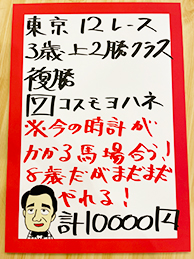 東京12レース
3歳上2勝クラス
複勝
7 コスモヨハネ
※今の時計が
かかる馬場合う!
8歳だがまだまだ
やれる!
計10000円